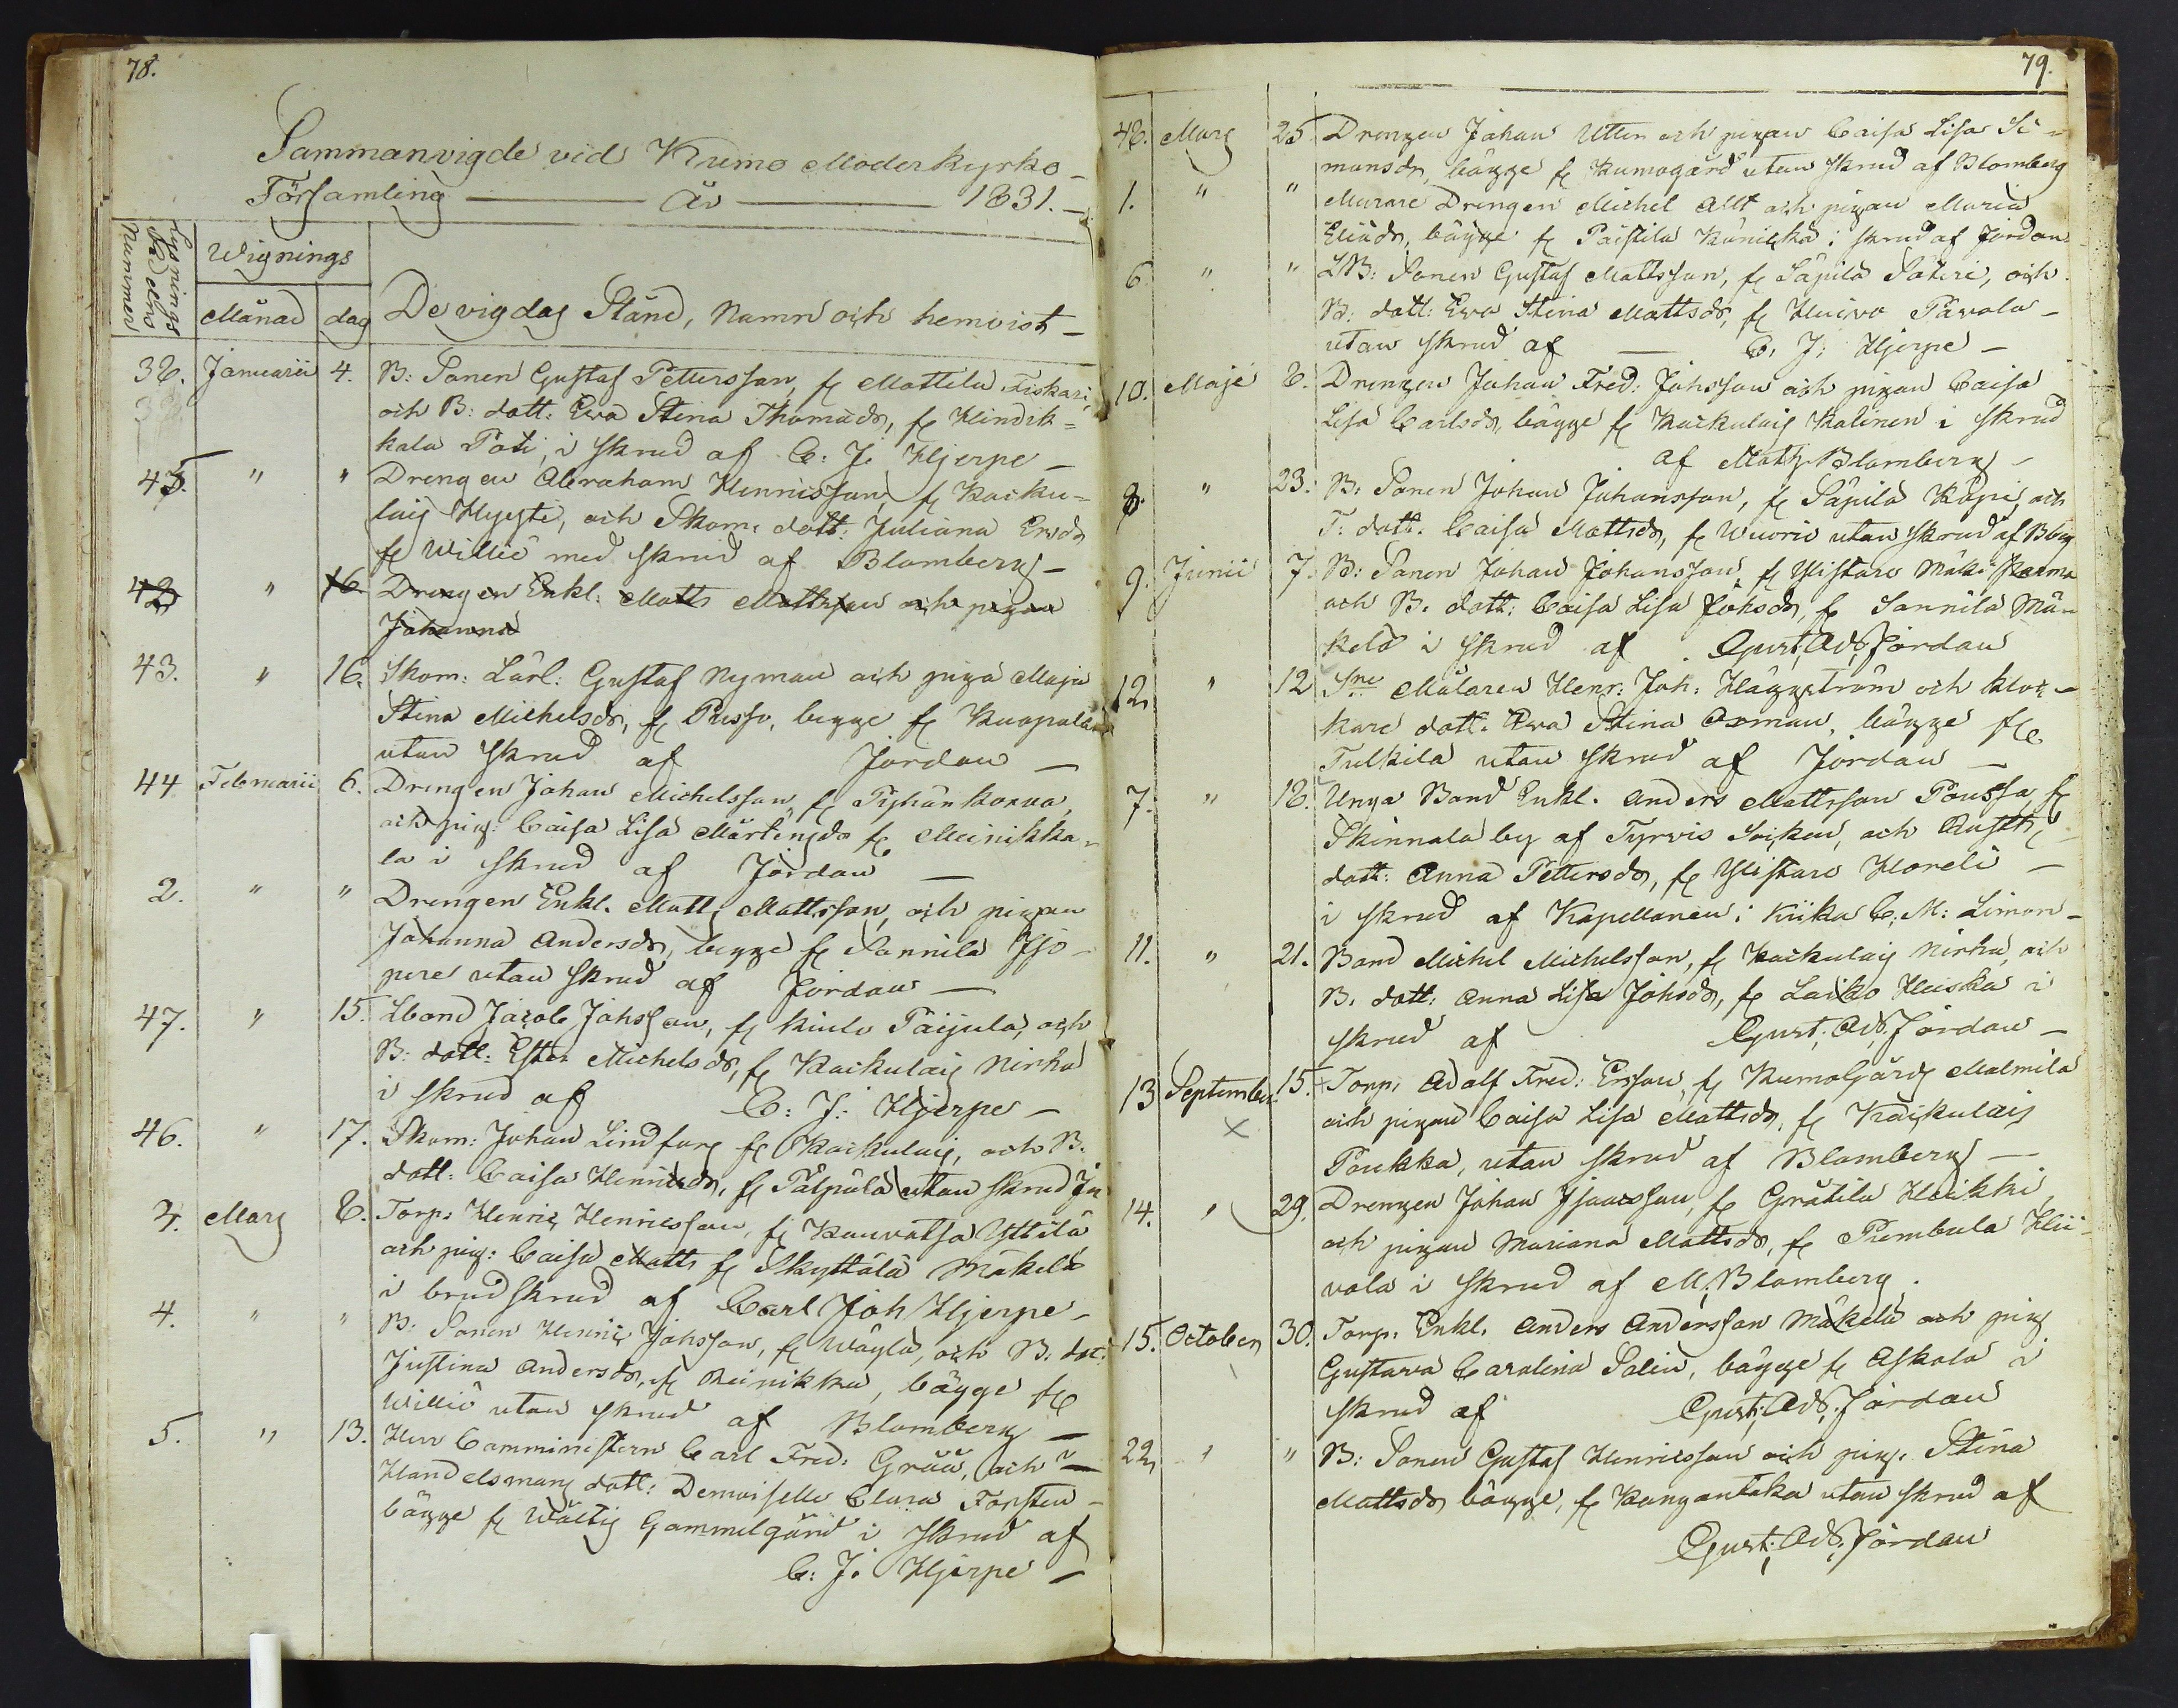 78.
Sammanvigde vid Kumo Moderkyrko-
Församling — År — 1831.
Lysnings Sedelns Nummer
Wignings
Månad dag De vigdas Stånd, Namn och hemvist
38. Januarii 4. B: Sonen Gustaf Pettersson, fr Mattila Fiskari,
och B: dott: Eva Stina Thomasdr, fr Hindik=
kala Poti, i skrud af C: J: Hjerpe —
45. " " Drengen Abraham Henrisson, fr Kacku=
lais Hyysti, och Skom: dott: Juliana Ersdr
fr Willio med skrud af Blomberg —
42 " 16 Drengen Enkl: Matts Mattsson och pigan
Johanna
43. " 16. Skom: Lärl: Gustaf Nyman och piga Maja
Stina Michelsdr, fr Pusso, begge fr Kuopala
utan skrud af Jordan —
44 Februarii 6. Drengen Johan Michelsson, fr Pyhänkorva,
och pig: Caisa Lisa Mårtensdr fr Meinikka-
la i skrud af Jordan —
2. " " Drengen Enkl. Matts Mattsson, och pigan
Johanna Andersdr, begge fr Sonnila Iso-
pere utan skrud af Jordan —
47. " 15. LBond Jacob Johsson, fr Kiulo Päijula, och
B: dott: Ester Michelsdr, fr Kackulais Nirha
i skrud af C: J: Hjerpe —
46. " 17. Skom: Johan Lindfors fr Kackulais, och B.
dott: Caisa Henricsdr, fr Pälpälä utan skrud Jn
7. Mars 8. Torp: Henric Henricsson, fr Kauvatsa Yttilä
och pig: Caisa Matts fr Skyttälä Mäkelä
i brudskrud af Carl Joh Hjerpe —
4. " " B: Sonen Henric Johsson, fr Wäylä, och B: dot:
Justina Andersdr, fr Reinikka, bägge fr
Willio utan skrud af Blomberg —
5. " 13. Herr Comministern Carl Fred: Grää, och
Handelsmans dott: Demoiselle Clara Forsten —
bägge fr Wältis Gammelgård i skrud af
C: J: Hjerpe —
79.
48. Mars 25. Drengen Johan Utter och pigan Caisa Lisa Si=
monsdr, bägge fr Kumogård utan skrud af Blomberg
1. " " Murare Drengen Michel Allt och pigan Maria
Eliädr, bägge fr Paistila Känickä i skrud af Jordan
6. " " LB: Sonen Gustaf Mattsson, fr Säpilä Säteri, och
B: dott: Eva Stina Mattsdr, fr Huivo Pävola —
utan skrud af — C: J: Hjerpe —
10. Maji 8. Drengen Johan Fred: Johsson och pigan Caisa
Lisa Carlsdr, bägge fr Kackulais Kalinen i skrud
af Math Blomberg —
8. " 23. B: Sonen Johan Johansson, fr Säpilä Käpi, och
T: dott: Caisa Mattsdr, fr Wuorio utan skrud af Bbg
9. Junii 7. B: Sonen Johan Johansson, fr Ylistaro Mäki Karma
och B: dott: Caisa Lisa Johsdr, fr Sonnila Mä=
kelä i skrud af Gust: Ad: Jordan
12, " 12 Sne Målaren Henr: Joh: Häggström och Kloc-
kare dott: Eva Stina Axman, bägge fr
Tulkila utan skrud af Jordan —
7. " 18. Unga Bond Enkl. Anders Mattsson Poussa, fr
Skinnala by af Tyrvis Socken, och Austk
dott: Anna Pettersdr, fr Ylistaro Horeli —
i skrud af Kapellanen i Kiikka C: M: Limon —
11. " 21. Bond Michel Michelsson, fr Kackulais Nirha, och
B: dott: Anna Lisa Johsdr, fr Laiko Heiska i
skrud af Gust: Ad: Jordan —
13 September 15. Torp: Adolf Fred: Ersson, fr Kumogårds Malmila
och pigan Caisa Lisa Mattsdr, fr Kräikulais
Poukka, utan skrud af Blomberg —
14. " 29. Drengen Johan Isaacsson, fr Gråtila Heikki,
och pigan Mariana Mattsdr, fr Pumbula Hii-
vola i skrud af M: Blomberg.
15. October 30. Torp: Enkl. Anders Andersson Mäkelä och pig
Gustava Carolina Salin, bägge fr Askola i
skrud af Gust: Ad: Jordan
22, " " B: Sonen Gustaf Henricsson och pig: Stina
Mattsdr bägge, fr Kangantaka utan skrud af
Gust: Ad: Jordan